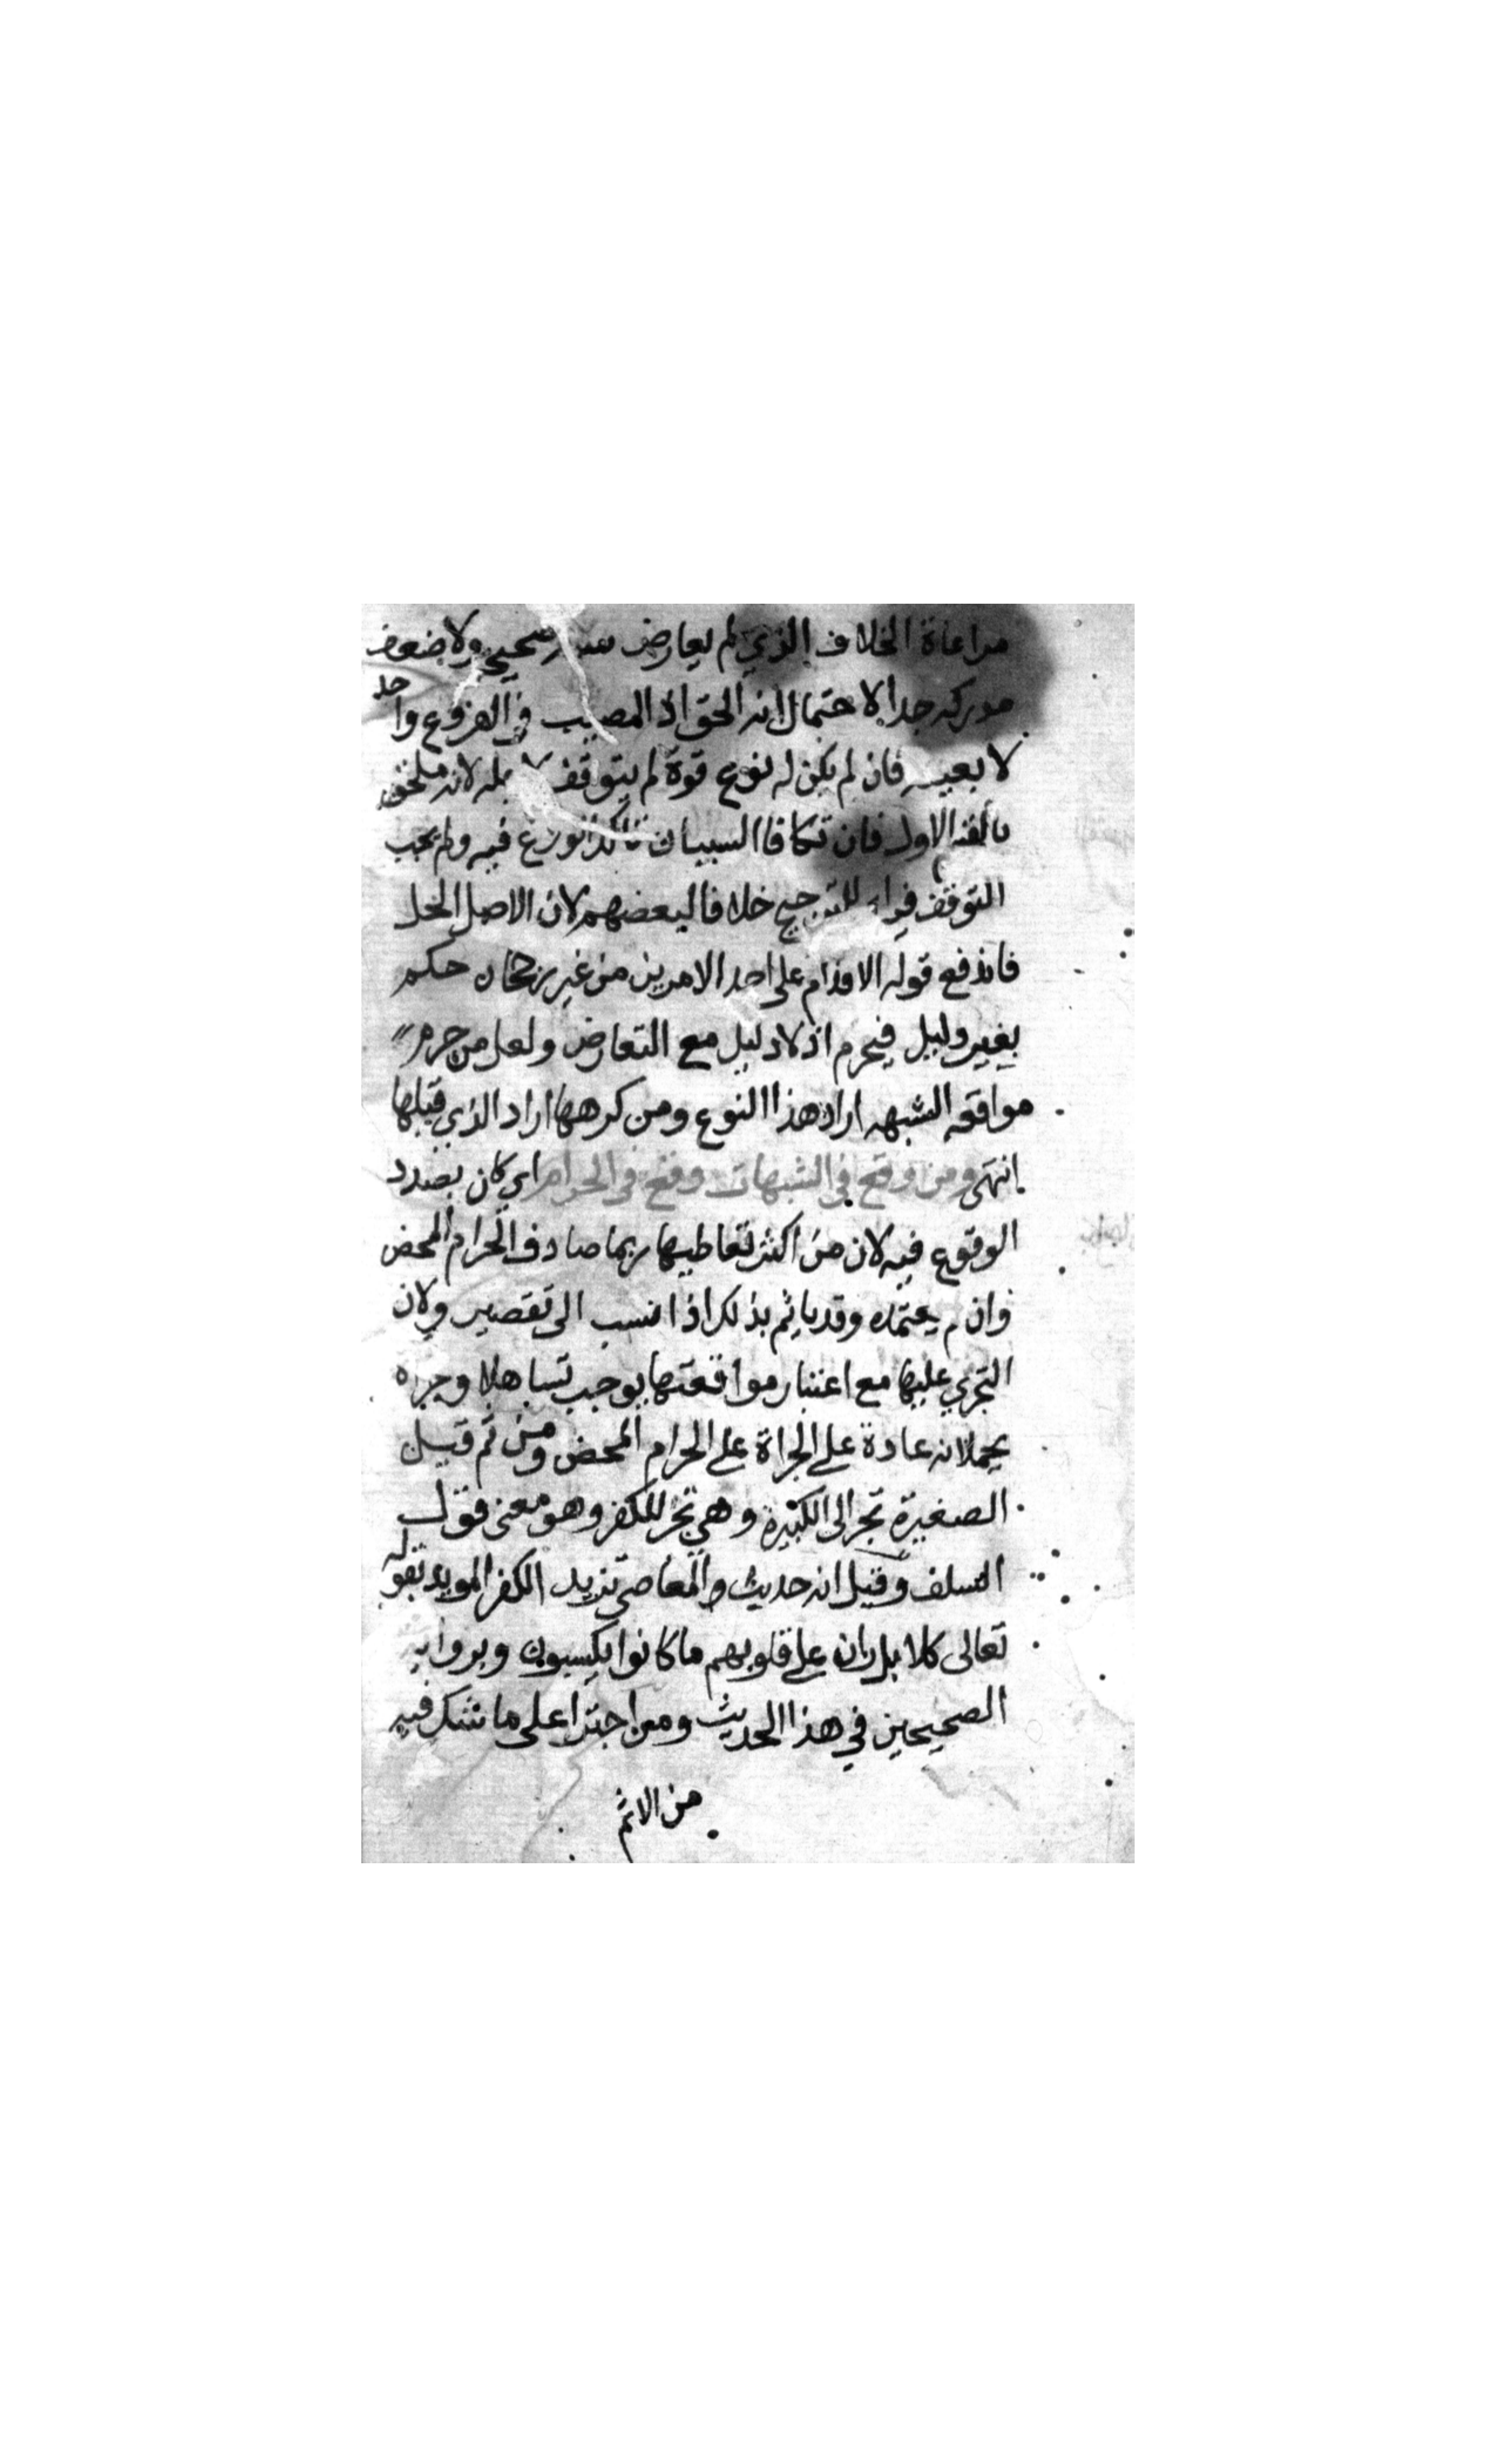 مراعاة الخلاف الذي لم يعارض صحيح ولا ضعف
مدركه جدا لاحتمال انه الحق اذ المصيب في الفروع واحد
لا بعينه فان لم يكن له نوع قوة لم يتوقف لانه ملحق
الاول فان تكافا السببان تاكد الورع فيه ولم يجب
التوقف فيه للترجيح خلافا لبعضهم لان الاصل الحل
فاندفع قوله الاقدام على احد الامرين من غير رجحان حكم
بغير دليل فيحرم اذ لا دليل مع التعارض ولعل من حرم
مواقعة الشبهه اراد هذا النوع ومن كرهها اراد الذي قبلها
انتهى ومن وقع في الشبهات وقع في الحرام اي كان بصدد
الوقوع فيه لان من اكثر تعاطيها ربما صادف الحرام المحض
وان لم يعتمده وقد ياثم بذلك اذا نسب الى تقصير ولان
التجري عليها مع اعتبار مواقعتها يوجب تساهلا وجراه
يحملانه عادة على الجراة على الحرام المحض ومن ثم قيل
الصغيرة تجر الى الكبيرة وهي تجر للكفر وهو معنى قول
السلف وقيل انه حديث والمعاصي تزيد الكفر المويد بقوله
تعالى كلا بل ران على قلوبهم ما كانوا يكسبون وبرواية
الصحيحين في هذا الحديث ومن اجترا على ما شك فيه
من الاثم